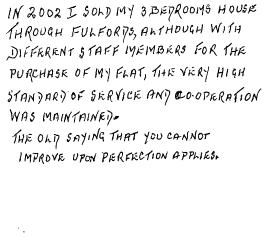 IN 2002 I SOLD MY 3 BEDROOMS HOUSE
THROUGH FULFORDS, ALTHOUGH WITH
DIFFERENT STAFF MEMBERS FOR THE
PURCHASE OF MY FLAT, THE VERY HIGH
STANDARD OF SERVICE AND CO-OPERATION
WAS MAINTAINED.
THE OLD SAYING THAT YOU CANNOT
IMPROVE UPON PERFECTION APPLIES.